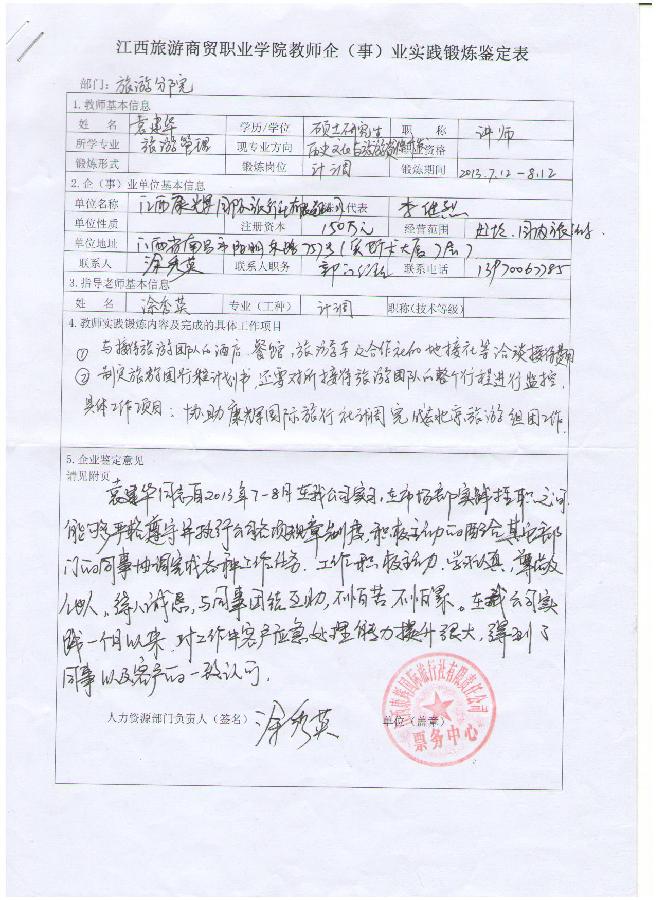 江西旅游商贸职业学院教师企（事）业实践锻炼鉴定表
部门：旅游分院
1.教师基本信息
姓 名 袁建华 学历/学位 硕士研究生 职 称 讲师
所学专业 旅游管理 现专业方向 历史文化与旅游 资格
锻炼形式 锻炼岗位 计调 锻炼期间 2013.7.12-8.12
2.企（事）业单位基本信息
单位名称 江西康辉国际旅行社有限 代表 李
单位性质 注册资本 150万元 经营范围 出境、国内旅游
单位地址 江西省南昌市
联系人 涂秀英 联系人职务 部门经理 联系电话
3.指导老师基本信息
姓 名 涂秀英 专业（工种） 计调 职称(技术等级)
4.教师实践锻炼内容及完成的具体工作项目
① 与接待旅游团队的酒店、餐馆、旅游车及合作社的地接社等洽谈接待费用
② 制定旅游团行程计划书，还需对所接待旅游团队的整个行程进行监控。
具体工作项目：协助康辉国际旅行社计调完成去北京旅游组团工作。
5.企业鉴定意见
请见附页
袁建华同志自2013年7-8月在我公司实习，在市场部实践挂职之间，
能够严格遵守并执行公司各项规章制度，积极主动的配合其它部
门的同事协调完成各种工作任务。工作积极主动，学习认真，尊敬
他人，待人诚恳，与同事团结互助，不怕苦不怕累。在我公司实
践一个月以来，对工作中客户应急处理能力提升很大，得到了
同事以及客户的一致认可。
人力资源部门负责人（签名） 涂秀英 单位（盖章）
江西康辉国际旅行社有限责任公司
票务中心